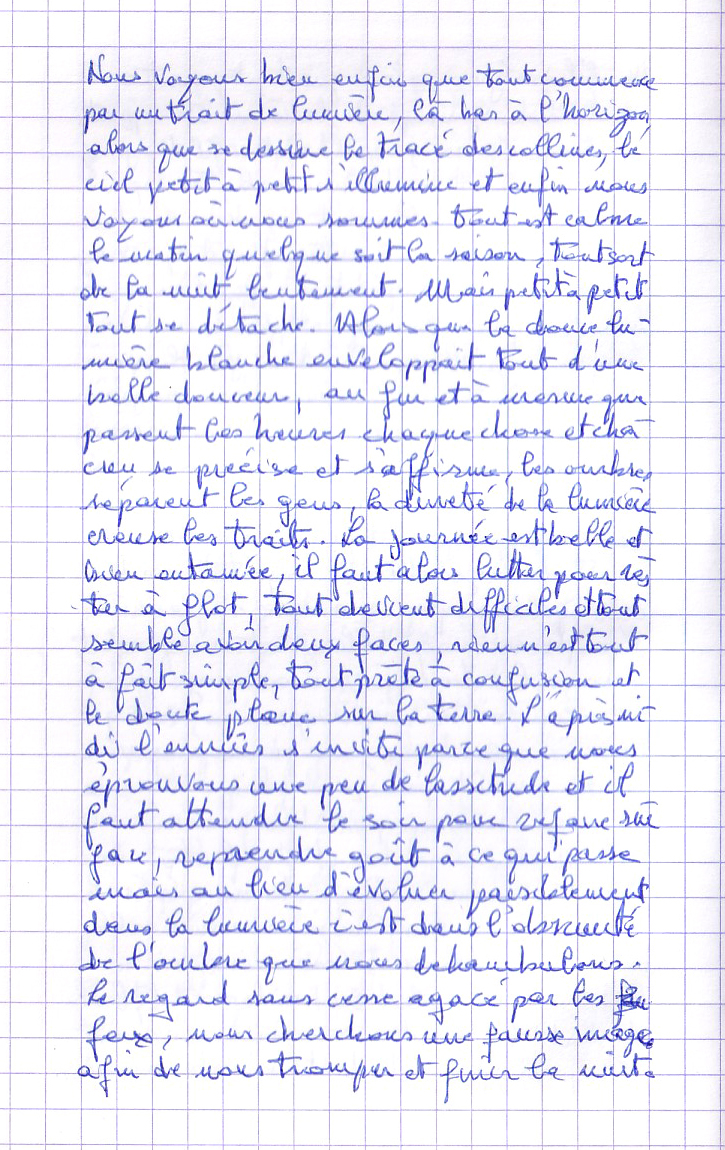 Nous voyons bien enfin que tout commence
par un trait de lumière, là bas à l'horizon
alors que se dessine le tracé des collines, le
ciel petit à petit s'illumine et enfin nous
voyons où nous sommes. Tout est calme
le matin quelque soit la saison, tout sort
de la nuit lentement. Mais petit à petit
tout se détache. Alors que la douce lu-
mière blanche enveloppait tout d'une
belle douceur, au fur et à mesure que
passent les heures chaque chose et cha
cun se précise et s'affirme, les ombres
séparent les gens, la dureté de la lumière
creuse les traits. La journée est belle et
bien entamée, il faut alors lutter pour res
ter à flot, tout devient difficiles et tout
semble avoir deux faces, rien n'est tout
à fait simple, tout prête à confusion et
le doute plane sur la terre. L'après mi
di l'ennuies s'invite parce que nous
éprouvons une peu de lassitude et il
faut attendre le soir pour refaire sur
face, reprendre goût à ce qui passe
mais au lieu d'évoluer paisiblement
dans la lumière c'est dans l'obscurité
de l'ombre que nous déhambulons.
Le regard sans cesse agacé par les
feux, nous cherchons une fausse image
afin de nous tromper et finir la nuit.